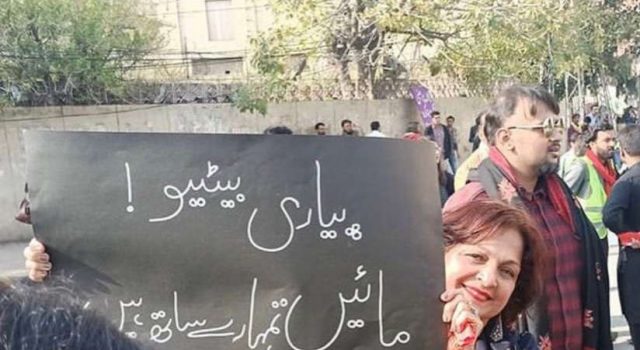 پیاری بیٹیو !
مائیں تمہارے ساتھ ہیں